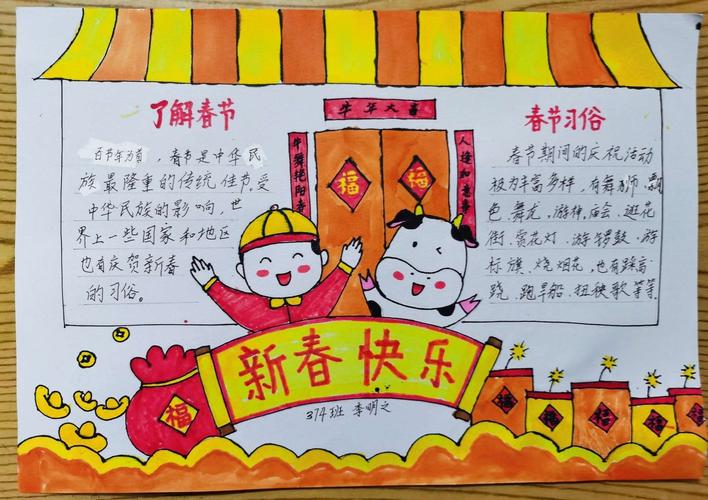 牛年大吉
牛舞艳阳春
人逢如意
了解春节
百节年为首，春节是中华民
族最隆重的传统佳节,受
中华民族的影响,世
界上一些国家和地区
也有庆贺新春
的习俗。
春节习俗
春节期间的庆祝活动
极为丰富多样,有舞狮、飘
色、舞龙、游神、庙会、逛花
街、赏花灯、游锣鼓、游
标旗、烧烟花、也有踩高
跷、跑旱船、扭秧歌等等.
福
福
新春快乐
374班 李明之
福
福
福
福
福
福